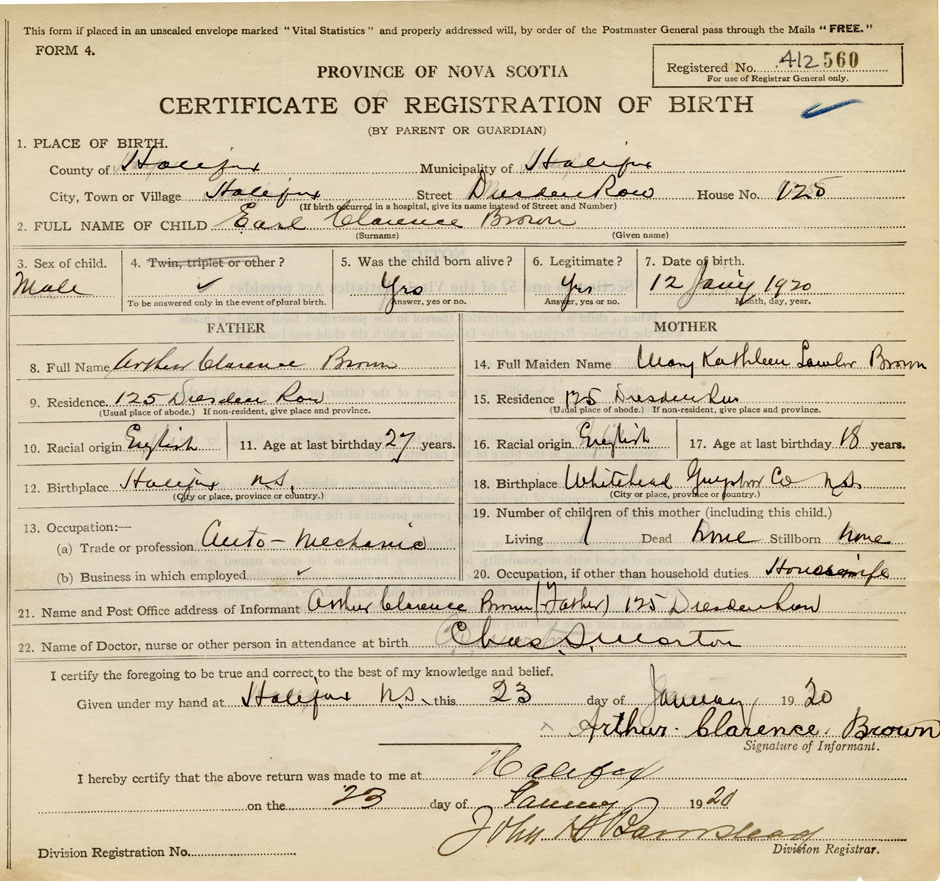 This form if placed in an unsealed envelope marked "Vital Statistics" and properly addressed will, by order of the Postmaster General pass through the Mails "FREE."
FORM 4.
Registered No. 412 560
For use of Registrar General only.
PROVINCE OF NOVA SCOTIA
CERTIFICATE OF REGISTRATION OF BIRTH
(BY PARENT OR GUARDIAN)
1. PLACE OF BIRTH.
County of Halifax Municipality of Halifax
City, Town or Village Halifax Street Dresden Row House No. 125
(If birth occurred in a hospital, give its name instead of Street and Number)
2. FULL NAME OF CHILD Earl Clarence Brown
(Surname) (Given name)
3. Sex of child. 4. Twin, triplet or other? 5. Was the child born alive? 6. Legitimate? 7. Date of birth.
Male ✓ Yes Yes 12 Jany 1920
To be answered only in the event of plural birth. Answer, yes or no. Answer, yes or no. Month, day, year.
FATHER
8. Full Name Arthur Clarence Brown
9. Residence. 125 Dresden Row
(Usual place of abode.) If non-resident, give place and province.
10. Racial origin English 11. Age at last birthday 27 years.
12. Birthplace Halifax N.S.
(City or place, province or country.)
13. Occupation:—
(a) Trade or profession Auto-Mechanic
(b) Business in which employed ✓
MOTHER
14. Full Maiden Name Mary Kathleen Lawlor Brown
15. Residence 125 Dresden Row
(Usual place of abode.) If non-resident, give place and province.
16. Racial origin English 17. Age at last birthday 18 years.
18. Birthplace Whitehead Guysboro Co N.S.
(City or place, province or country.)
19. Number of children of this mother (including this child.)
Living 1 Dead None Stillborn None
20. Occupation, if other than household duties Housewife
21. Name and Post Office address of Informant Arthur Clarence Brown (Father) 125 Dresden Row
22. Name of Doctor, nurse or other person in attendance at birth Chas. S. Morton
I certify the foregoing to be true and correct to the best of my knowledge and belief.
Given under my hand at Halifax N.S. this 23 day of January 1920
Arthur Clarence Brown
Signature of Informant.
I hereby certify that the above return was made to me at Halifax
on the 23 day of January 1920
John H Barnstead
Division Registration No. Division Registrar.